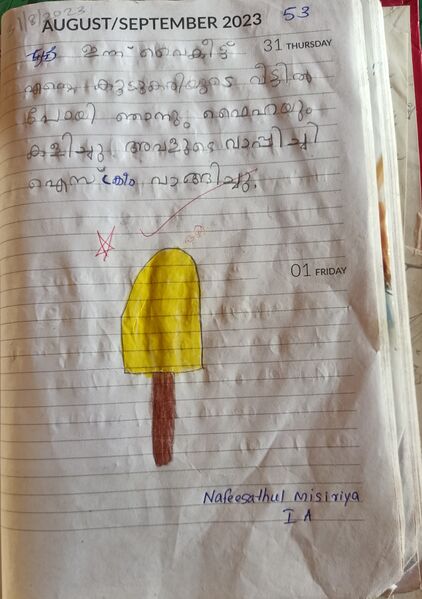 31/8/2023
AUGUST/SEPTEMBER 2023 53
31 THURSDAY
ഇന്ന് വൈകീട്ട്
എന്റെ കൂട്ടുകാരിയുടെ വീട്ടിൽ
പോയി ഞാനും
കളിച്ചു. അവളുടെ വാപ്പിച്ചി
ഐസ്ക്രീം വാങ്ങിച്ചു.
01 FRIDAY
Nafeesathul Misiriya
I A